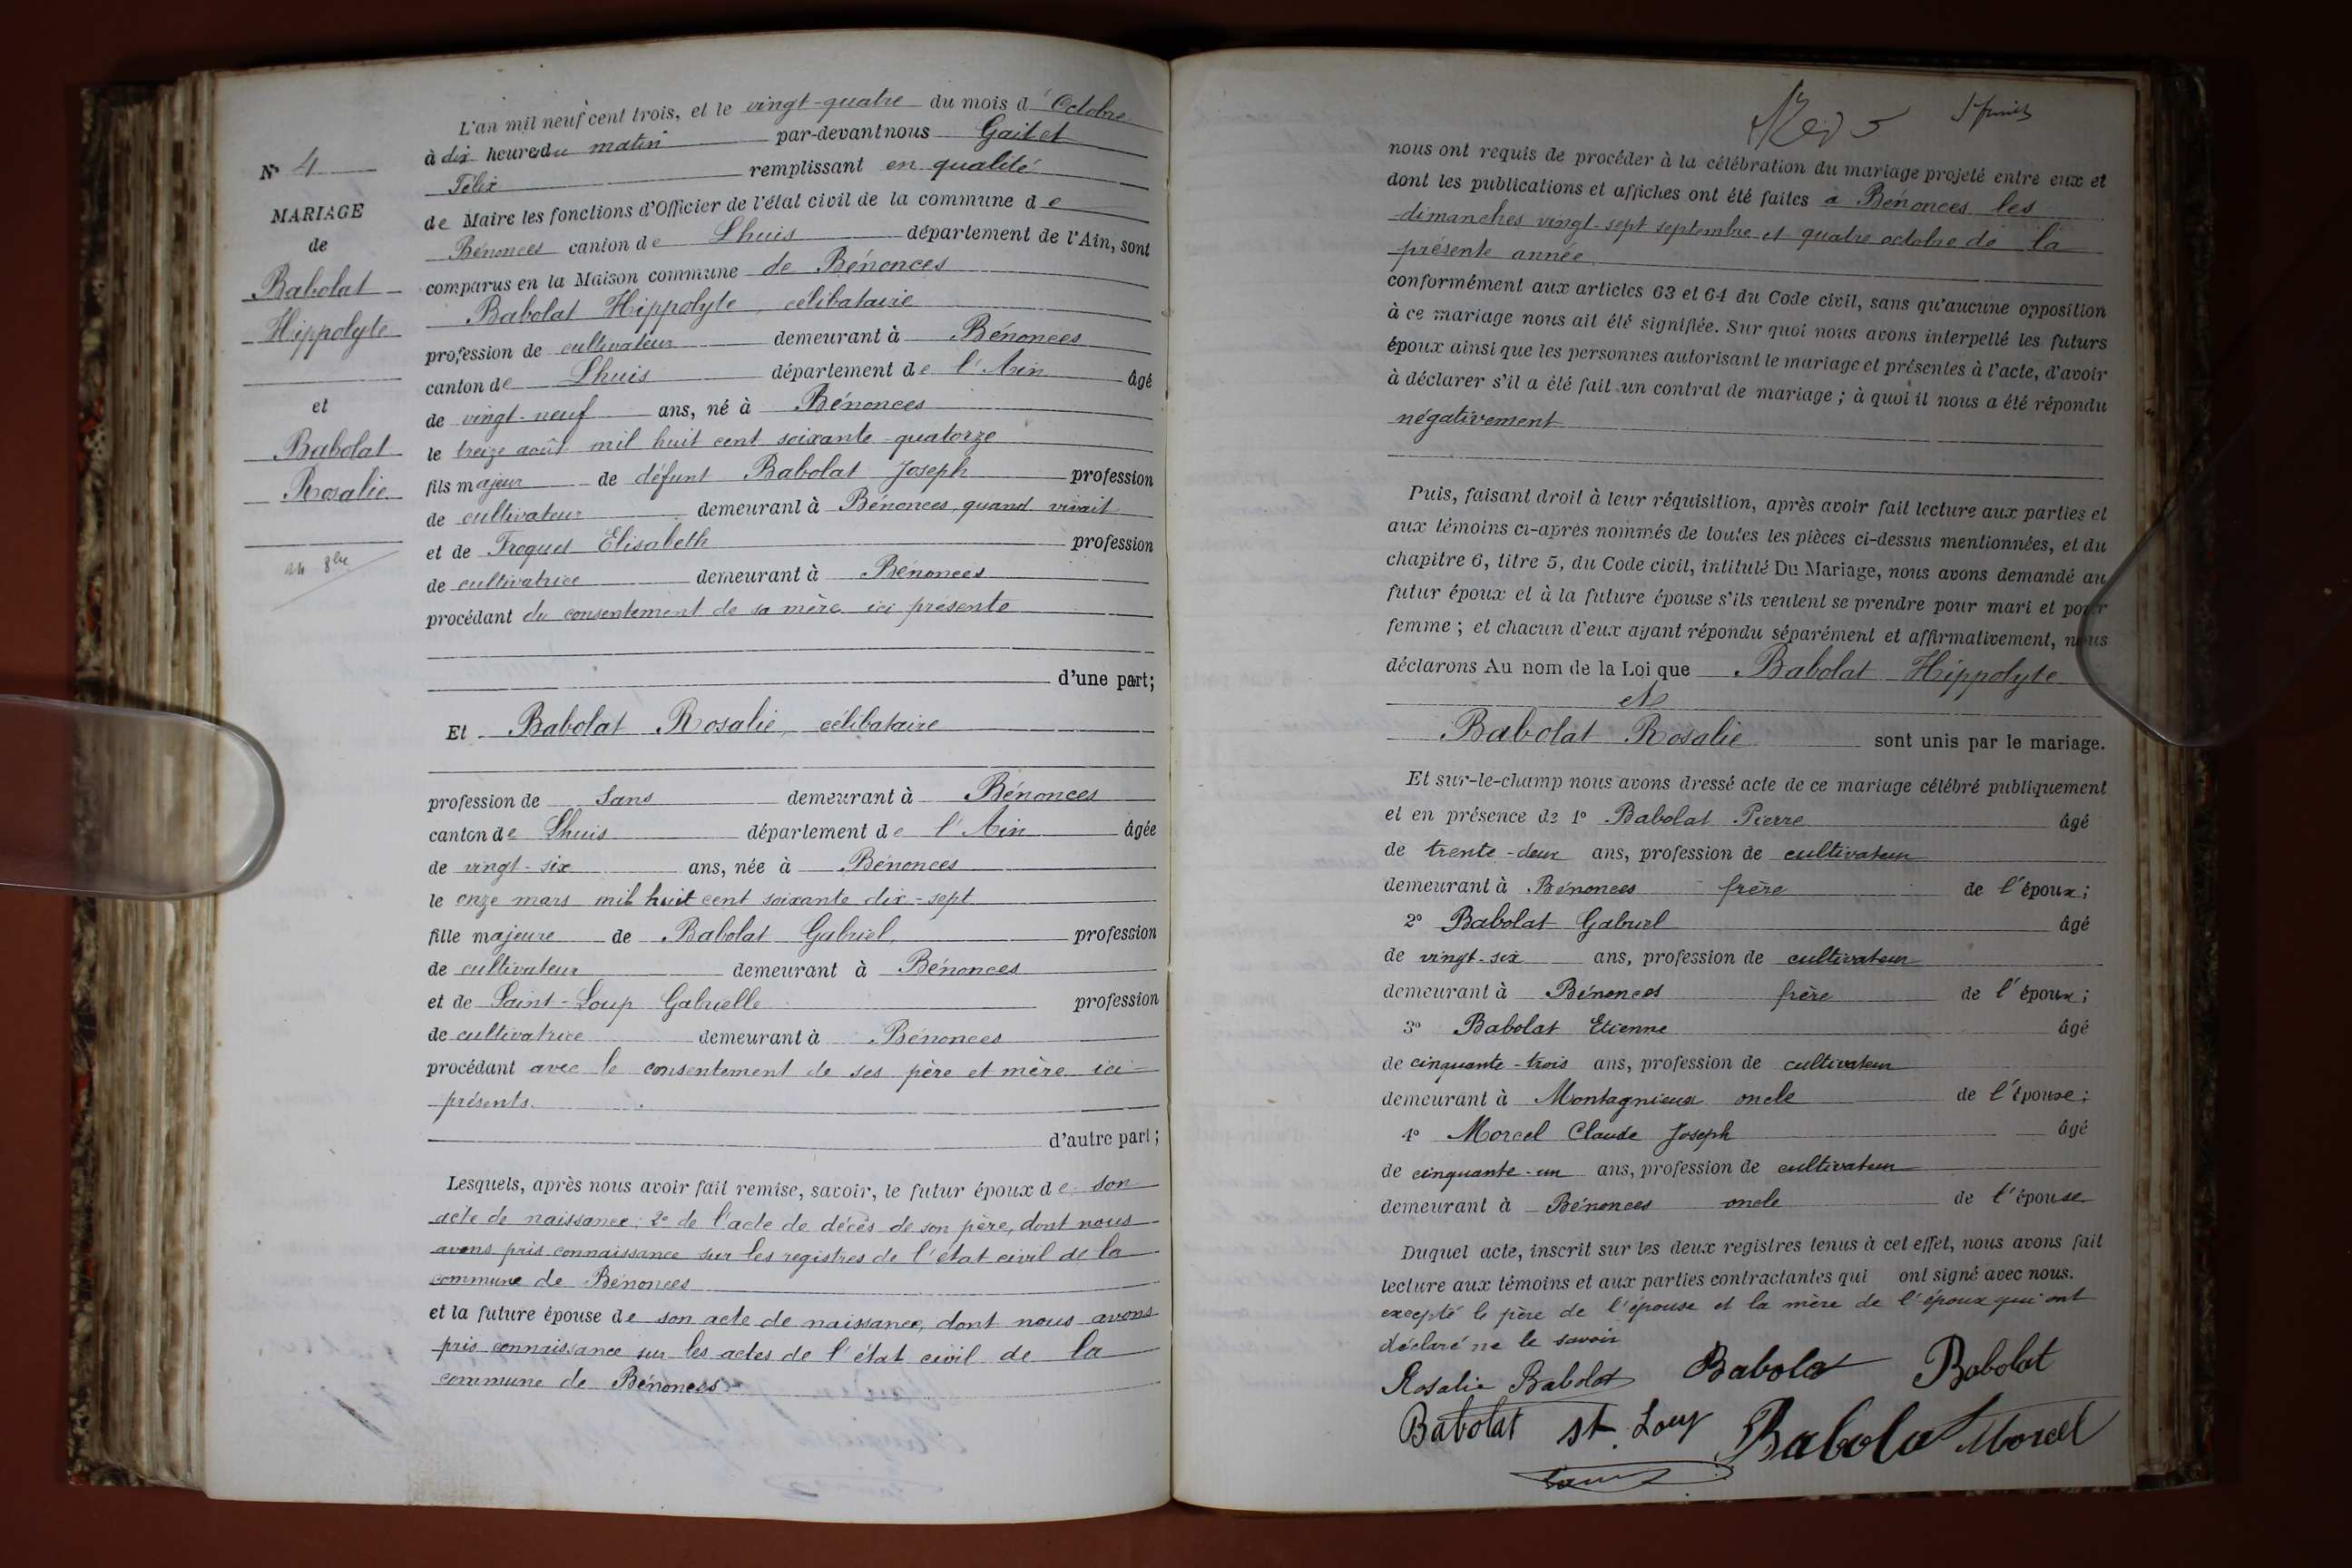 N° 4
MARIAGE
de
Babolat
Hippolyte
et
Babolat
Rosalie
L'an mil neuf cent trois, et le vingt-quatre du mois d'Octobre
à dix heures du matin par-devant nous Gaillet
Félix remplissant en qualité
de Maire les fonctions d'Officier de l'état civil de la commune de
Bénonces canton de Lhuis département de l'Ain, sont
comparus en la Maison commune de Bénonces
Babolat Hippolyte, célibataire
profession de cultivateur demeurant à Bénonces
canton de Lhuis département de l'Ain âgé
de vingt-neuf ans, né à Bénonces
le treize août mil huit cent soixante-quatorze
fils majeur de défunt Babolat Joseph profession
de cultivateur demeurant à Bénonces, quand vivait
et de Troquet Elisabeth profession
de cultivatrice demeurant à Bénonces
procédant du consentement de sa mère ici présente
d'une part;
Et Babolat Rosalie, célibataire
profession de Sans demeurant à Bénonces
canton de Lhuis département de l'Ain âgée
de vingt-six ans, née à Bénonces
le onze mars mil huit cent soixante dix-sept
fille majeure de Babolat Gabriel, profession
de cultivateur demeurant à Bénonces
et de Saint-Loup Gabrielle profession
de cultivatrice demeurant à Bénonces
procédant avec le consentement de ses père et mère ici
présents.
d'autre part;
Lesquels, après nous avoir fait remise, savoir, le futur époux de son
acte de naissance; 2° de l'acte de décès de son père, dont nous
avons pris connaissance sur les registres de l'état civil de la
commune de Bénonces
et la future épouse de son acte de naissance, dont nous avons
pris connaissance sur les actes de l'état civil de la
commune de Bénonces
nous ont requis de procéder à la célébration du mariage projeté entre eux et
dont les publications et affiches ont été faites à Bénonces les
dimanches vingt-sept septembre et quatre octobre de la
présente année.
conformément aux articles 63 et 64 du Code civil, sans qu'aucune opposition
à ce mariage nous ait été signifiée. Sur quoi nous avons interpellé les futurs
époux ainsi que les personnes autorisant le mariage et présentes à l'acte, d'avoir
à déclarer s'il a été fait un contrat de mariage; à quoi il nous a été répondu
négativement
Puis, faisant droit à leur réquisition, après avoir fait lecture aux parties et
aux témoins ci-après nommés de toutes les pièces ci-dessus mentionnées, et du
chapitre 6, titre 5, du Code civil, intitulé Du Mariage, nous avons demandé au
futur époux et à la future épouse s'ils veulent se prendre pour mari et pour
femme; et chacun d'eux ayant répondu séparément et affirmativement, nous
déclarons Au nom de la Loi que Babolat Hippolyte
et
Babolat Rosalie sont unis par le mariage.
Et sur-le-champ nous avons dressé acte de ce mariage célébré publiquement
et en présence de 1° Babolat Pierre âgé
de trente-deux ans, profession de cultivateur
demeurant à Bénonces frère de l'époux;
2° Babolat Gabriel âgé
de vingt-six ans, profession de cultivateur
demeurant à Bénonces frère de l'époux;
3° Babolat Etienne âgé
de cinquante-trois ans, profession de cultivateur
demeurant à Montagnieux oncle de l'épouse;
4° Morcel Claude Joseph âgé
de cinquante-un ans, profession de cultivateur
demeurant à Bénonces oncle de l'épouse
Duquel acte, inscrit sur les deux registres tenus à cet effet, nous avons fait
lecture aux témoins et aux parties contractantes qui ont signé avec nous.
excepté le père de l'épouse et la mère de l'époux qui ont
déclaré ne le savoir
Rosalie Babolat Babolat Babolat
Babolat St. Loup Babolat Morcel